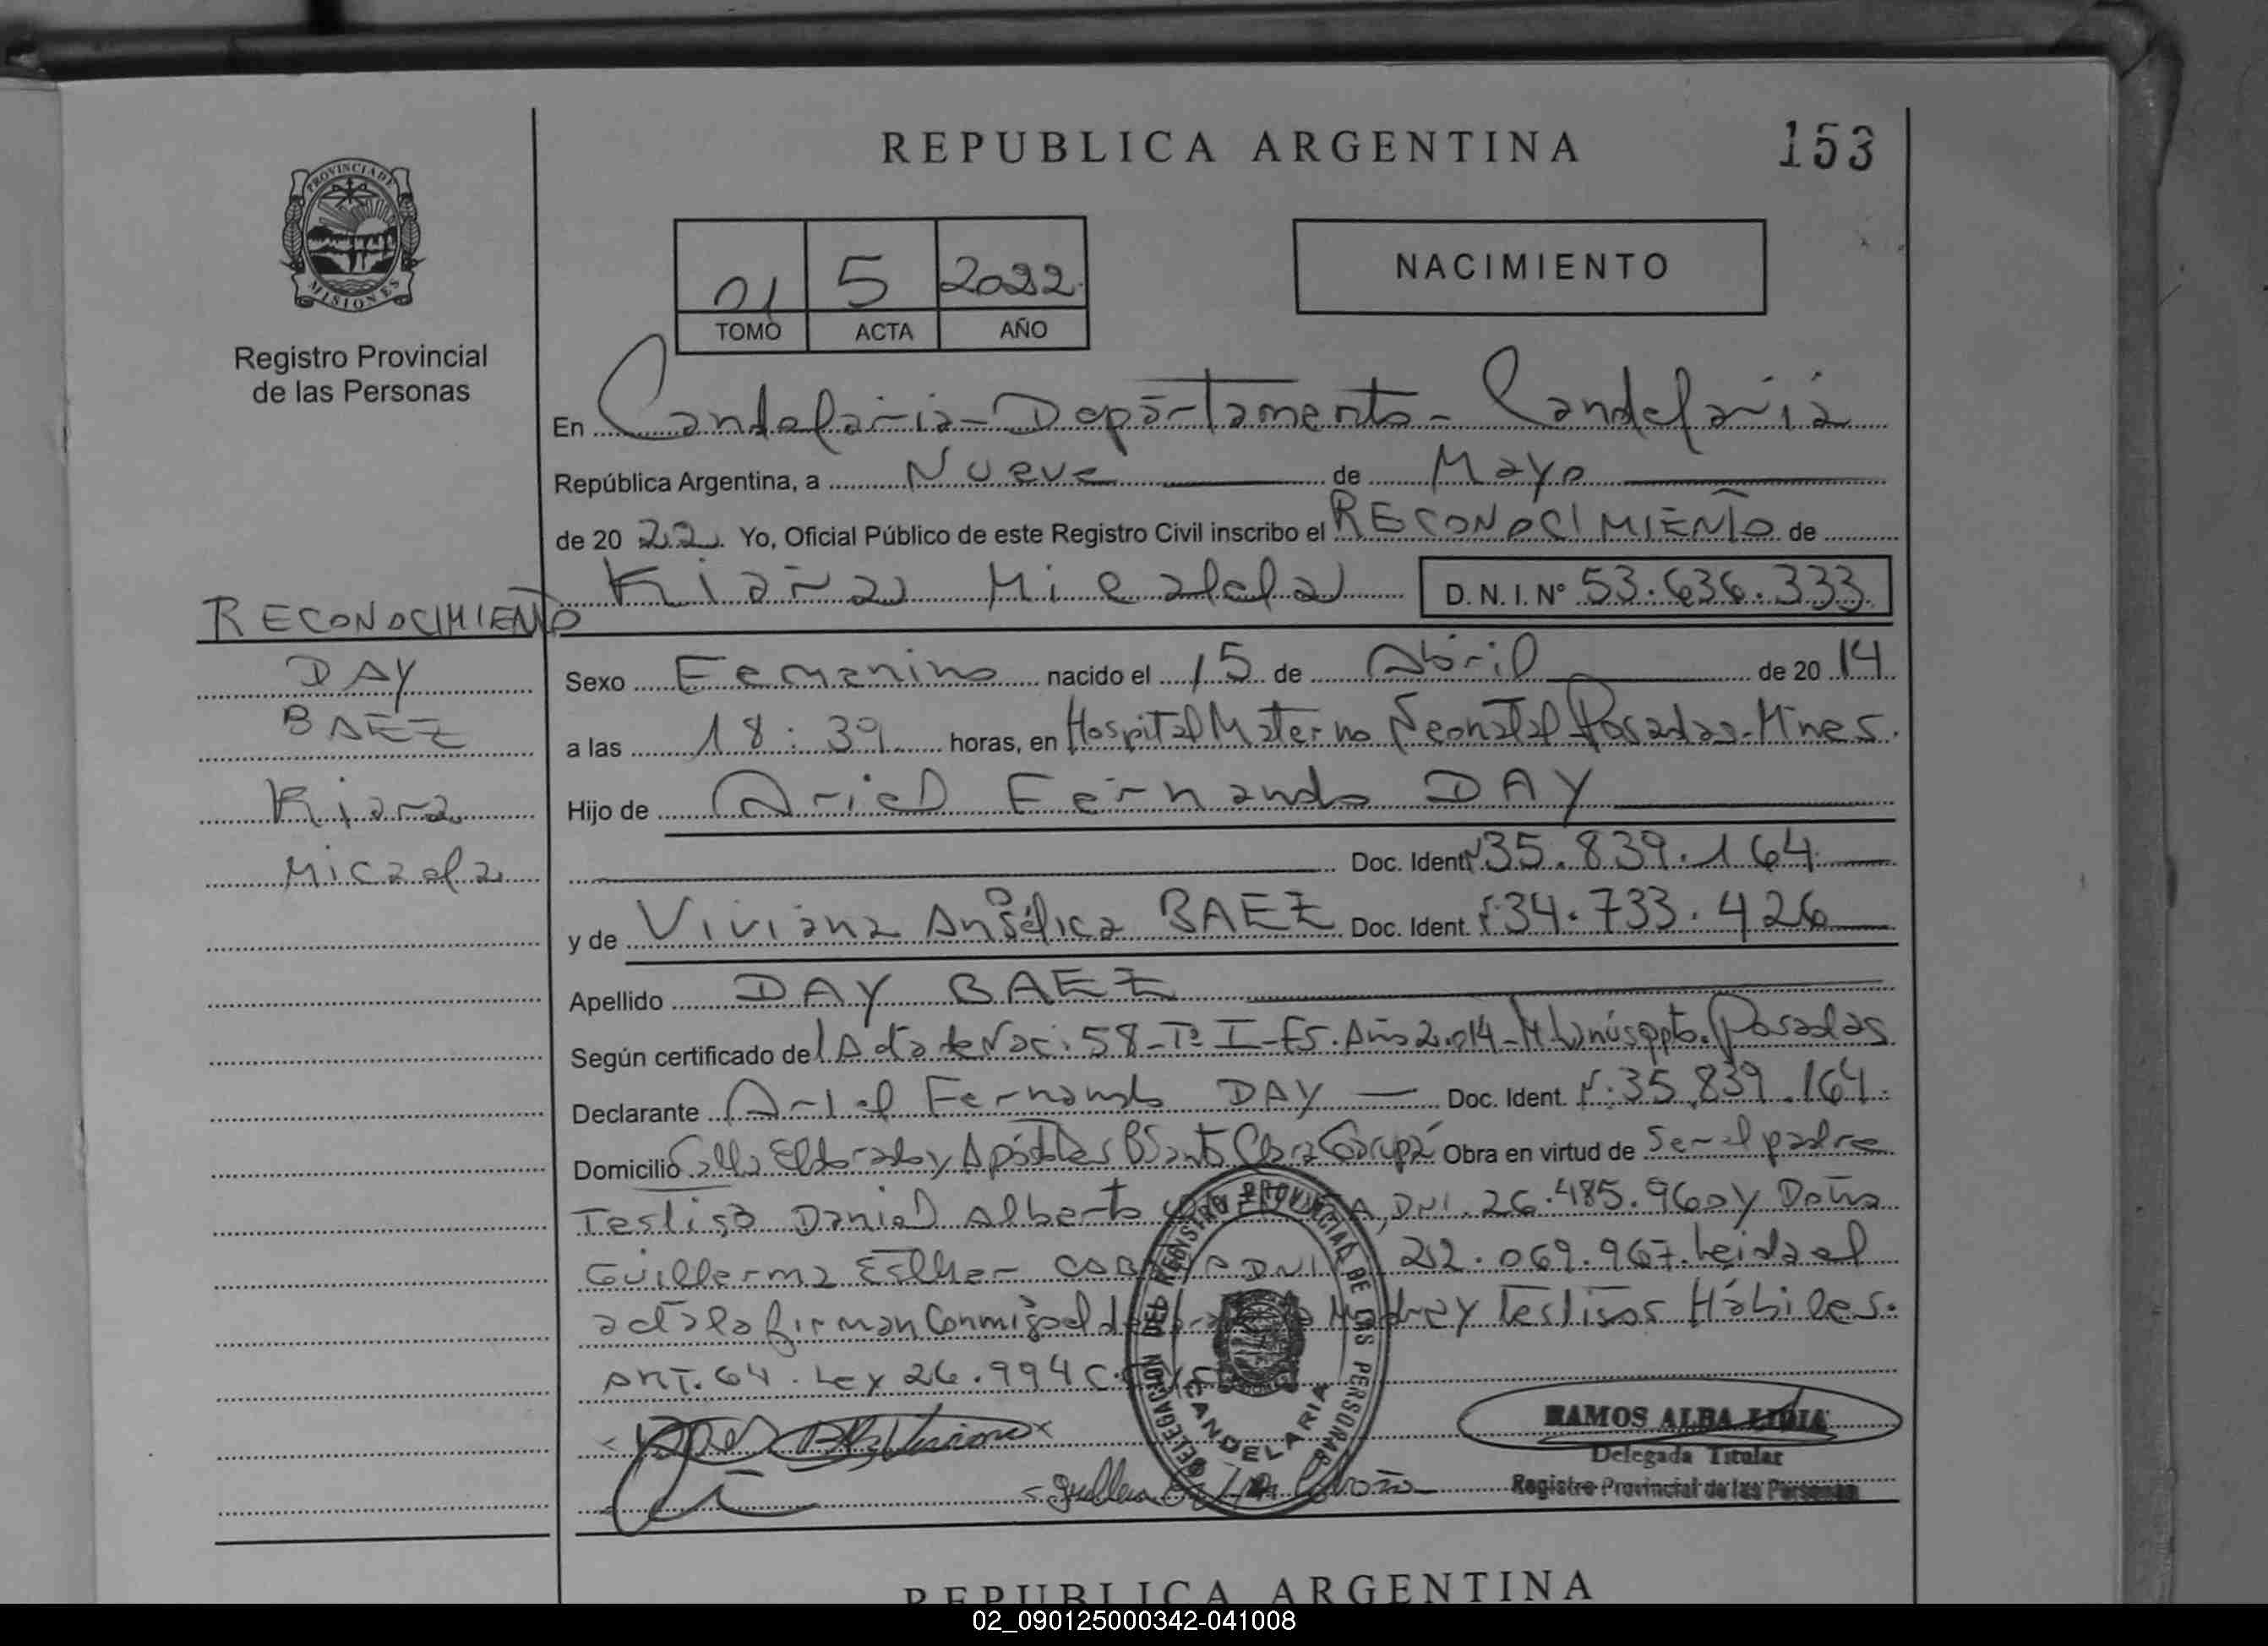 REPUBLICA ARGENTINA
153
PROVINCIA DE
MISIONES
Registro Provincial
de las Personas
01 5 2022
TOMO ACTA AÑO
NACIMIENTO
En Candelaria - Departamento - Candelaria
República Argentina, a Nueve de Mayo
de 2022. Yo, Oficial Público de este Registro Civil inscribo el RECONOCIMIENTO de
Kiara Micaela D. N. I. N° 53.636.333
RECONOCIMIENTO
DAY
BAEZ
Kiara
Micaela
Sexo Femenino nacido el 15 de Abril de 2014
a las 18:39 horas, en Hospital Materno Neonatal Posadas-Mnes.
Hijo de Ariel Fernando DAY
Doc. Ident. 35.839.164
y de Viviana Angélica BAEZ Doc. Ident. 34.733.426
Apellido DAY BAEZ
Según certificado del Acta de Nac: 58-T° I- Año 2.014- Posadas
Declarante Ariel Fernando DAY Doc. Ident. 35.839.164.
Domicilio Calle Eldorado y Apóstoles B Santa Clara Garupá Obra en virtud de Ser el padre
Testigo Daniel Alberto DNI. 26.485.960 y Doña
Guillerma Esther DNI 22.069.967. Leida el
acta la firman Conmigo el Madre y Testigos Hábiles.
ART. 64. Ley 26.994
DELEGACION DEL REGISTRO PROVINCIAL DE LAS PERSONAS
CANDELARIA
RAMOS ALBA LIDIA
Delegada Titular
Registro Provincial de las Personas
REPUBLICA ARGENTINA
02_090125000342-041008